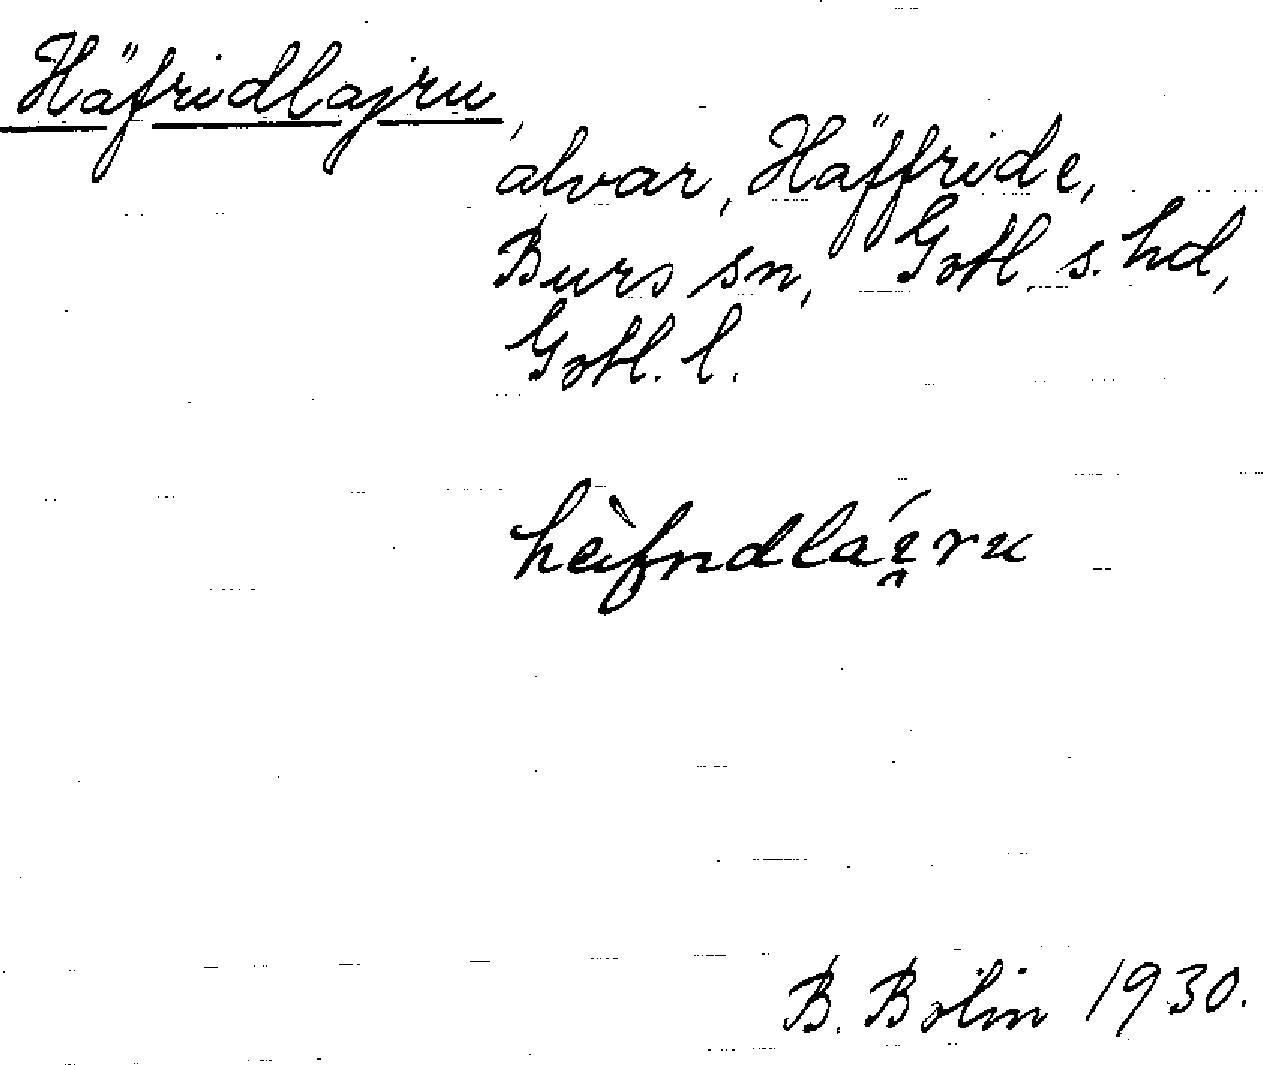 Häfridlajru,
alvar, Häffride,
Burs sn, Gotl. s. hd,
Gotl. l.
hèifrıdlái̯ru
B. Bolin 1930.